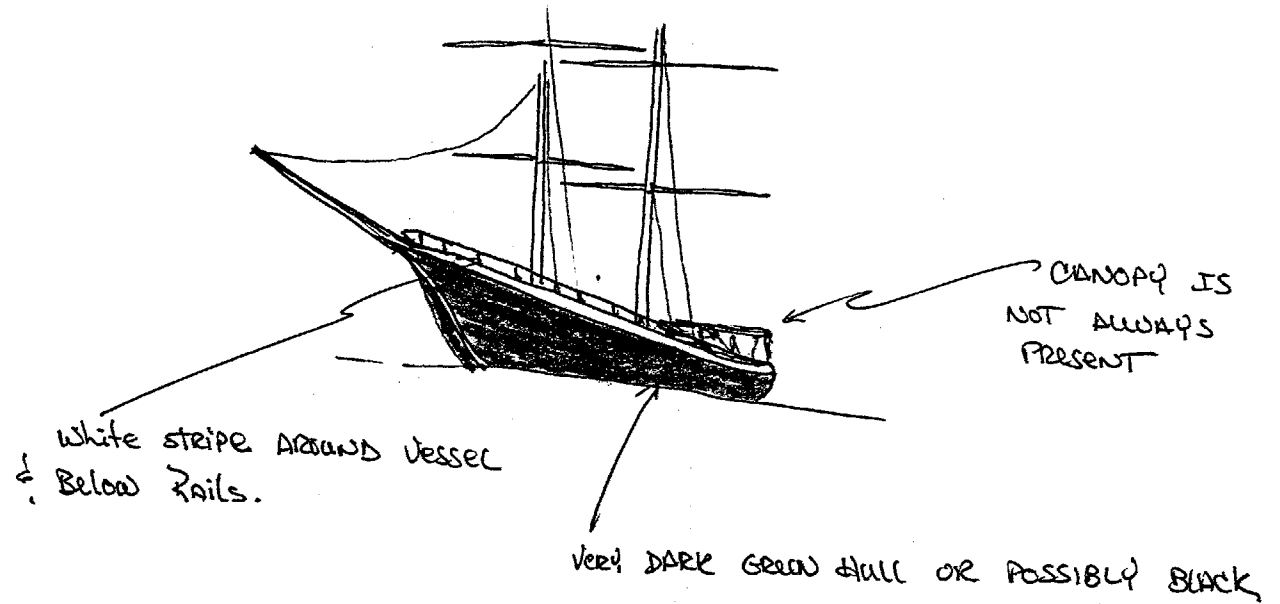 CANOPY IS
NOT ALWAYS
PRESENT
White stripe AROUND Vessel
& Below Rails.
Very DARK GREEN HULL OR POSSIBLY BLACK